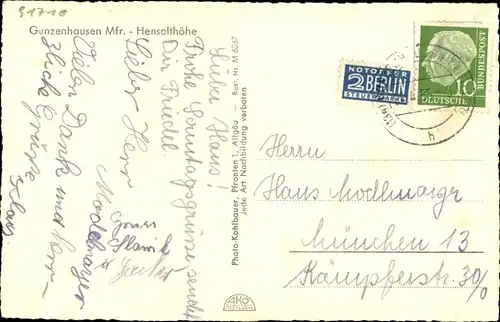 51710
Gunzenhausen Mfr. - Hensolthöhe
Lieber Herr
Modlmayer
Vielen Dank und herz-
zliche Grüße
Klaus
Lieber Hans!
Frohe Sonntagsgrüsse sendet
Dir Friedel
Photo-Kohlbauer, Pfronten 1, Allgäu - Best. Nr. M 6057
Jede Art Nachbildung verboten
NOTOPFER
2 BERLIN
STEUERMARKE
10
DEUTSCHE
BUNDESPOST
Herrn
Hans Modlmayr
München 13
Kämpferstr. 30/0
AKO